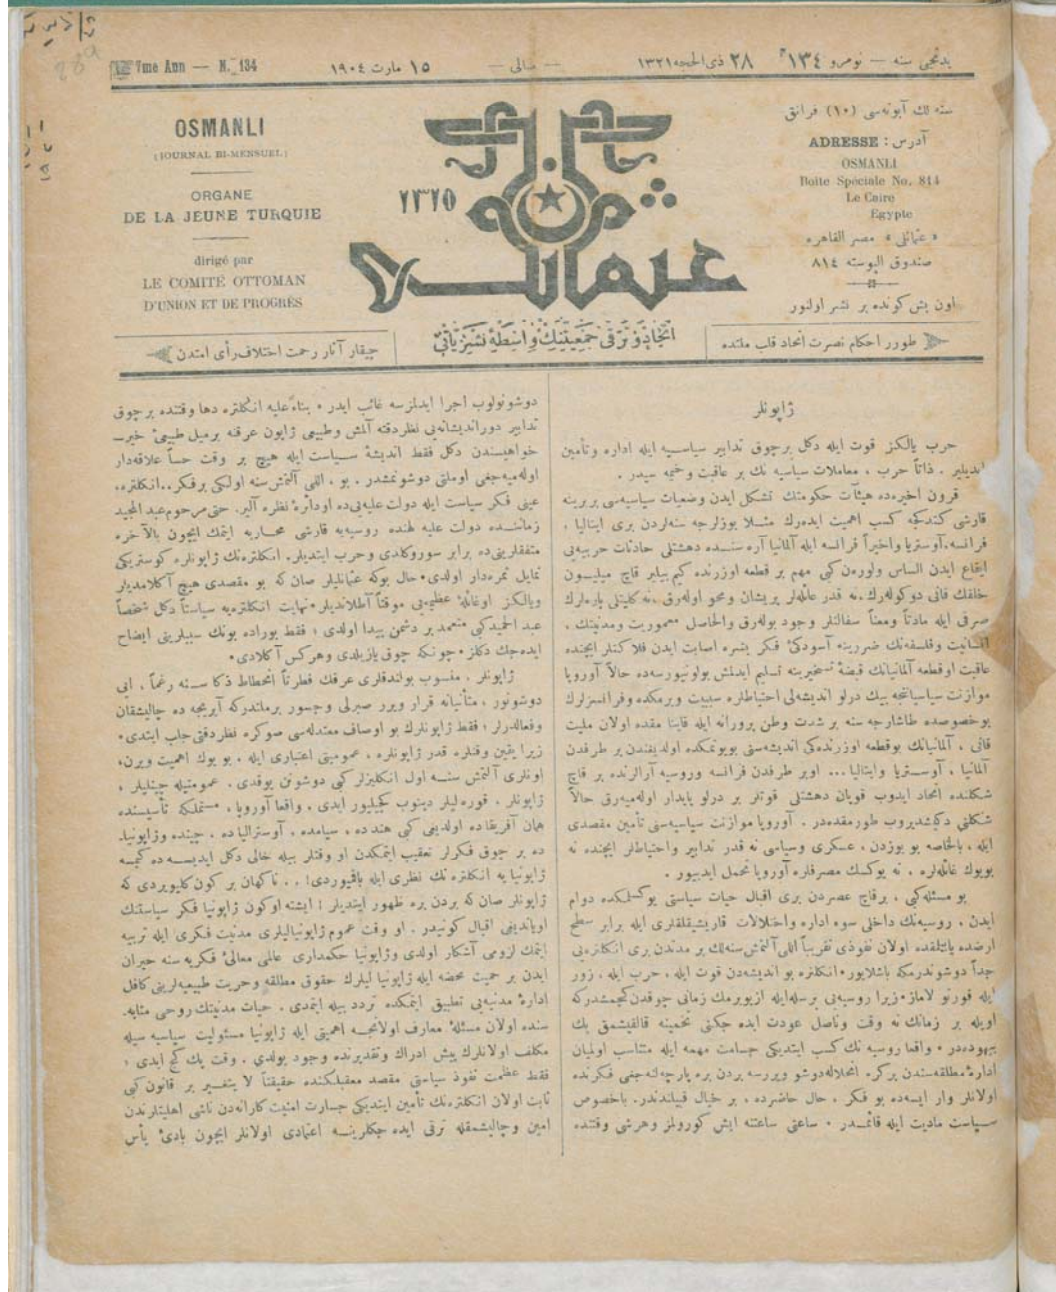 یدنجی سنه — نومرو ١٣٤
٢٨ ذی الحجه ١٣٢١
— صالی —
١٥ مارت ١٩٠٤
7me Ann — N. 134
OSMANLI
(JOURNAL BI-MENSUEL)
ORGANE
DE LA JEUNE TURQUIE
dirigé par
LE COMITÉ OTTOMAN
D'UNION ET DE PROGRÈS
عثمانلی
سنه لك آبونه سی (١٠) فرانق
آدرس : ADRESSE
OSMANLI
Boite Spéciale No. 814
Le Caire
Egypte
« عثمانلی » مصر القاهره
صندوق البوسته ٨١٤
اون بش كونده بر نشر اولنور
طورر احكام نصرت اتحاد قلب ملتده
اتحاد و ترقی جمعیتنك واسطهٔ نشریاتی
چیقار آثار رحمت اختلاف رأی امتدن
ژاپونلر
حرب یالكز قوت ایله دكل برچوق تدابیر سیاسیه ایله اداره وتأمین
ایدیلیر . ذاتاً حرب ، معاملات سیاسیه نك بر عاقبت وخیمه سیدر .
قرون اخیره ده هیئات حكومتك تشكل ایدن وضعیات سیاسیه سی بربرینه
قارشی كندكجه كسب اهمیت ایده رك مثلا یوزلرجه سنه لردن بری ایتالیا ،
فرانسه، آوستریا واخیراً فرانسه ایله آلمانیا آره سنده دهشتلی حادثات حربیه یی
ایقاع ایدن الساس ولورەن كبی مهم بر قطعه اوزرنده كیم بیلیر قاچ میلیون
خلقك قانی دوكوله رك، نه قدر عائله لر پریشان ومحو اوله رق، نه كلیتلی پاره لرك
صرفی ایله مادتاً ومعناً سفالتلر وجود بوله رق والحاصل معموریت ومدنیتك ،
انسانیت وفلسفه نك ضررینه آسودكیٔ فكر بشره اصابت ایدن فلاكتلر ایچنده
عاقبت اوقطعه آلمانیانك قبضهٔ تسخیرینه تسلیم ایدلمش بولونیورسه ده حالا آوروپا
موازنت سیاسیاتنجه بیك درلو اندیشه لی احتیاطلره سبیت ویرمكده وفرانسزلرك
بوخصوصده طاشارجه سنه بر شدت وطن پرورانه ایله قاینامقده اولان ملیت
قانی ، آلمانیانك بوقطعه اوزرنده كی اندیشه سنی بویوتمكده اولدیغندن بر طرفدن
آلمانیا ، آوستریا وایتالیا ... اوبر طرفدن فرانسه وروسیه آرالرنده بر قاچ
شكلنده اتحاد ایدوب قویان دهشتلی قوتلر بر درلو پایدار اوله میه رق حالا
شكلنی دكیشدیروب طورمقده در . آوروپا موازنت سیاسیه سنی تأمین مقصدی
ایله ، بالخاصه بو یوزدن ، عسكری وسیاسی نه قدر تدابیر واحتیاطلر ایچنده نه
بویوك غائله لره ، نه یوكسك مصرفلره آوروپا تحمل ایدییور .
بو مسئله كبی ، برقاچ عصردن بری اقبال حیات سیاستی یوكسلمكده دوام
ایدن ، روسیه نك داخلی سوء اداره واختلالات قاریشیقلقلری ایله برابر سطح
ارضده یایلمقده اولان نفوذی تقریباً اللی آلتمش سنه لك بر مدتدن بری انكلتره یی
جداً دوشوندرمكه باشلایور. انكلتره بو اندیشه دن قوت ایله ، حرب ایله ، زور
ایله قورتولاماز. زیرا روسیه یی برسله ایله ازیویرمك زمانی چوقدن كچمشدركه
اویله بر زمانك نه وقت وناصل عودت ایده جكنی تخمینه قالقیشمق بك
بیهوده در . واقعا روسیه نك كسب ایتدیكی جسامت مهمه ایله متناسب اولمیان
ادارهٔ مطلقه سندن
اولانلر وار ایسه ده بو فكر ، حال حاضرده ، بر خیال قبیلندندر. باخصوص
سیاست مادیت ایله قائمدر . ساعتی ساعتنه ایش كورولمز وهرشی وقتنده
دوشونولوب اجرا ایدلمزسه غائب ایدر . بناءً علیه انكلتره دها وقتنده برچوق
تدابیر دوراندیشانه یی نظر دقته آلمش وطبیعی ژاپون عرقنه برمیل طبیعیٔ خیر
خواهیسندن دكل فقط اندیشهٔ سیاست ایله هیچ بر وقت حساً علاقه دار
اوله میه جغی اوملتی دوشونمشدر . بو ، اللی آلتمش سنه اولكی برفكر.. انكلتره،
عینی فكر سیاست ایله دولت علیه یی ده اودائرهٔ نظره آلیر. حتی مرحوم عبدالمجید
زماننده دولت علیه لهنده روسیه یه قارشی محاربه ایتمك ایچون بالآخره
متفقلرینی ده برابر سوروكلدی وحرب ایتدیلر. انكلتره نك ژاپونلره كوستردیكی
تمایل ثمره دار اولدی. حال بوكه عثمانلیلر صان كه بو مقصدی هیچ آكلامدیلر
ویالكز اوغائلهٔ عظیمه یی موقتاً آطلاتدیلر. نهایت انكلتره یه سیاستاً دكل شخصاً
عبد الحمید كبی متعمد بر دشمن پیدا اولدی ؛ فقط بوراده بونك سببلرینی ایضاح
ایده جك دكلز . چونكه چوق یازیلدی وهركس آكلادی.
ژاپونلر ، منسوب بولندقلری عرقك فطرتاً انحطاط ذكاسنه رغماً ، ایی
دوشونور ، متأنیانه قرار ویرر صبرلی وجسور برملتدركه آیریجه ده چالیشقان
وفعالدرلر ؛ فقط ژاپونلرك بو اوصاف معتدله سی صوكره نظر دقتی جلب ایتدی.
زیرا یقین وقتلره قدر ژاپونلره ، عمومیتی اعتباری ایله ، بو بوك اهمیت ویرن،
اونلری آلتمش سنه اول انكلیزلر كبی دوشونن یوقدی . عمومیتله چینلیلر ،
ژاپونلر ، قوره لیلر دینوب كچیلیور ایدی . واقعا آوروپا ، مستملكه تأسیسنده
همان آفریقاده اولدیغی كبی هندده ، سیامده ، آوسترالیاده ، چینده وژاپونیا
ده بر چوق فكرلر تعقیب ایتمكدن او وقتلر بیله خالی دكل ایدیسه ده كیمسه
ژاپونیا یه انكلتره نك نظری ایله باقمیوردی! .. ناكهان بر كون كلیوبردی كه
ژاپونلر صان كه بردن بره ظهور ایتدیلر ؛ ایشته اوكون ژاپونیا فكر سیاستنك
اویاندیغی اقبال كونیدر . او وقت عموم ژاپونیالیلری مدنیت فكری ایله تربیه
ایتمك لزومی آشكار اولدی وژاپونیا حكمداری عالمی معالیٔ فكریه سنه حیران
ایدن بر حمیت محضه ایله ژاپونیا لیلرك حقوق مطلقه وحریت طبیعیه لرینی كافل
ادارهٔ مدنیه یی تطبیق ایتمكده تردد بیله ایتمدی . حیات مدنیتك روحی مثابه
سنده اولان مسئلهٔ معارف اولانجه اهمیتی ایله ژاپونیا مسئولیت سیاسیه سیله
مكلف اولانلرك پیش ادراك وتقدیرنده وجود بولدی . وقت پك كچ ایدی ؛
فقط عظمت نفوذ سیاستی مقصد معقبلكنده حقیقتاً لا یتغیر بر قانون كبی
ثابت اولان انكلتره نك تأمین ایتدیكی جسارت امنیت كارانه دن ناشی اهلیتلرندن
امین وچالیشمقله ترقی ایده جكلرینه اعتمادی اولانلر ایچون بادیٔ یأس